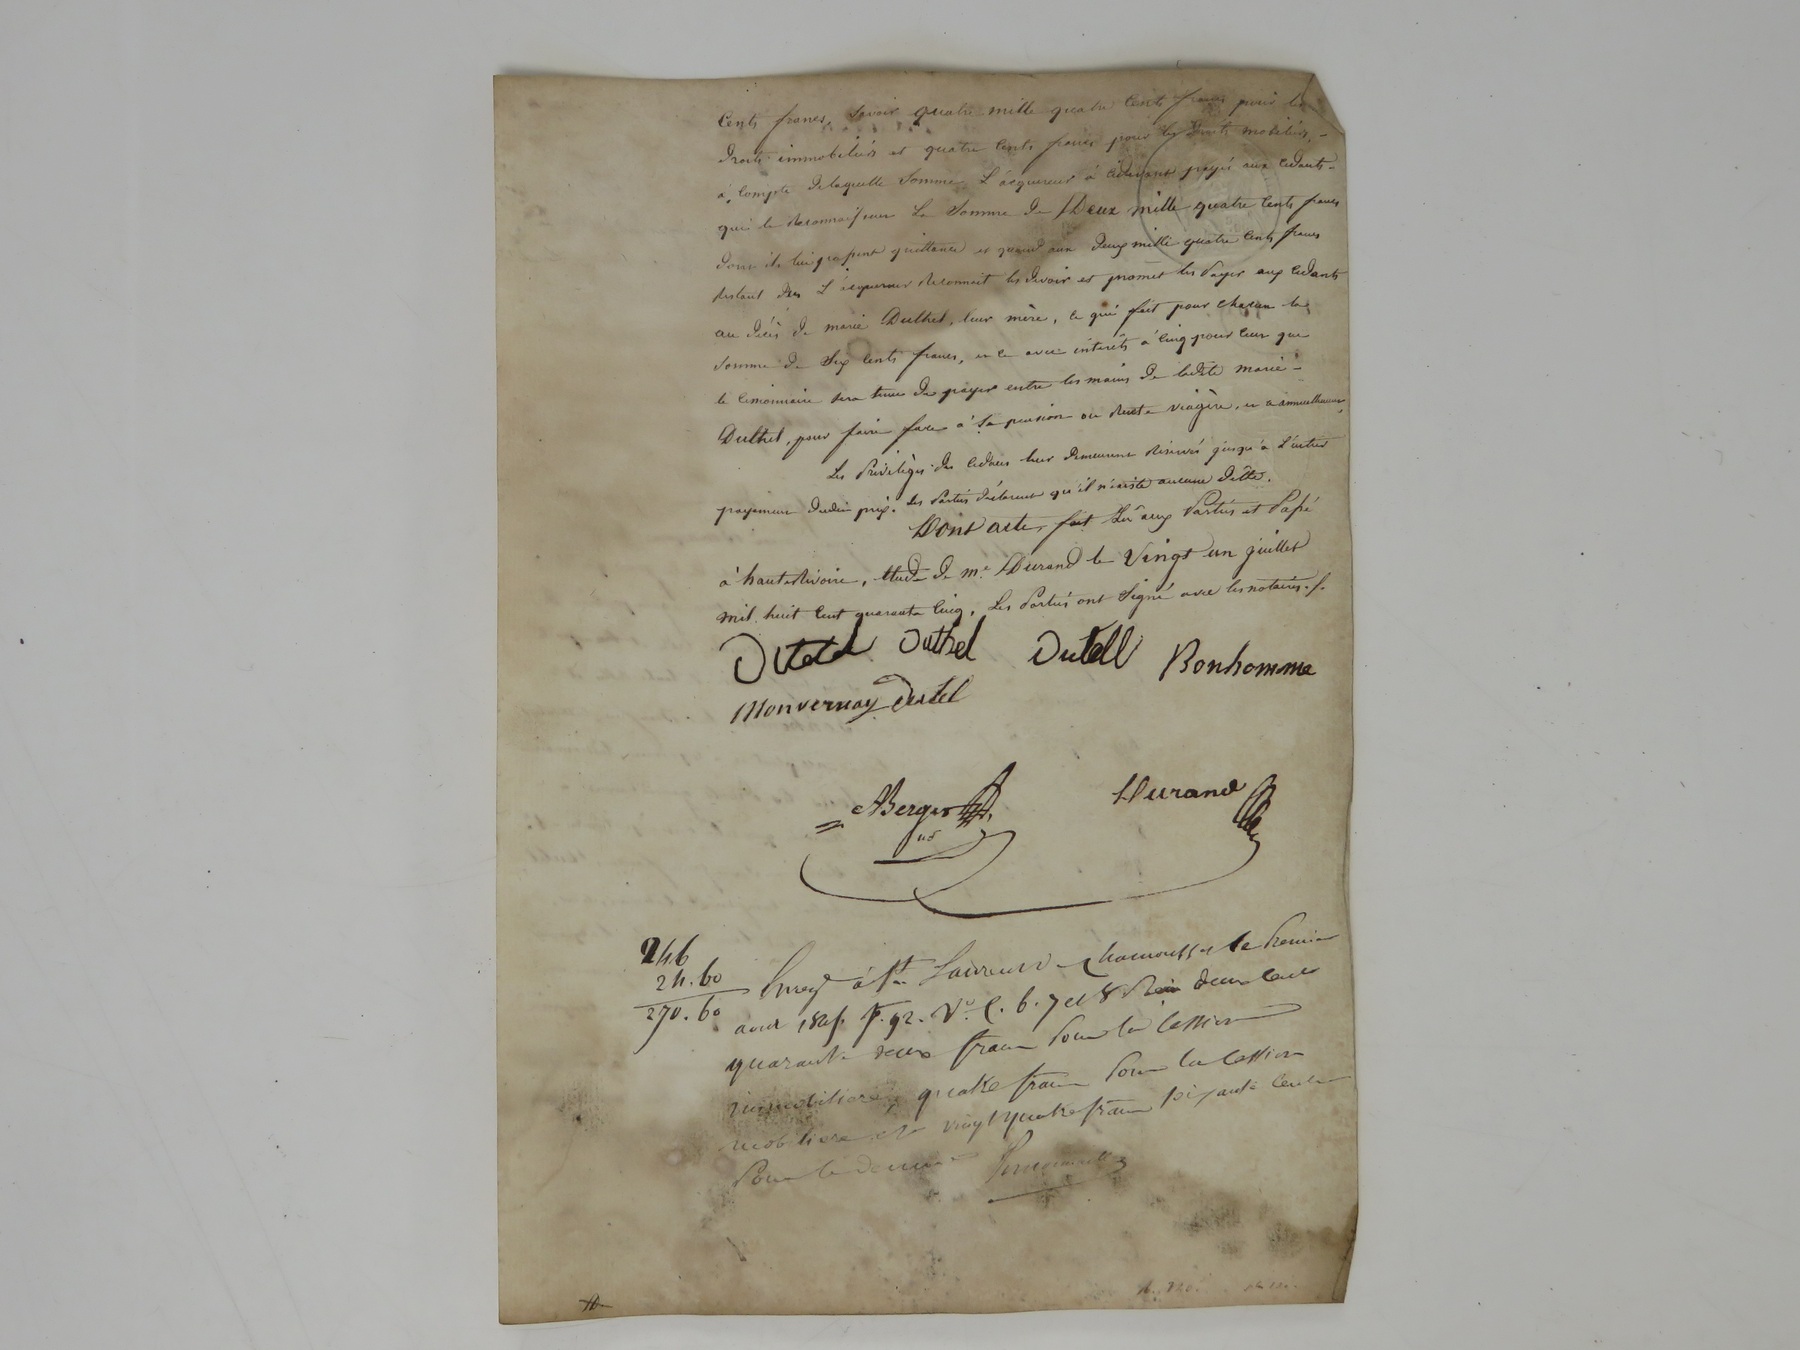 Cents francs, Savoir quatre mille quatre Cents francs pour les
droits immobiliers et quatre cents francs pour les droits mobiliers,
à compte de laquelle Somme L'acquereur à cidevant payé aux cédants
qui le reconnaissent La Somme de Deux mille quatre Cents francs
dont ils lui passent quittance et quand aux deux mille quatre Cents francs
restant L'acquereur reconnait les devoir et promet les Payer aux Cédants
au décès de marie Duthel, leur mère, ce qui fait pour chacun la
Somme de Six Cents francs, et ce avec interêts à cinq pour cent que
le Cessionnaire sera tenu de payer entre les mains de ladite marie
Duthel, pour faire face à Sa pension ou Rente viagère, et annuellement,
Les Privilèges des Cédants leur demeurent réservés jusqu'à L'entier
payement dudit prix. Les Parties déclarent qu'il n'existe aucune dette.
Dont acte, fait Lu aux Parties et Passé
à hauterivoire, étude de me. Durand le Vingt un juillet
mil huit cent quarante Cinq, Les Parties ont Signé avec les notaires./.
Duthel Dutell Bonhomme
Monvernay
Berger Durand
246
24.60
270.60
Enregé à St Laurent Chamousset le Premier
aout 1845. f. 92. Vo. C. 6. 7 et 8 Reçu deux cent
quarante deux francs Pour la Cession
immobiliere, quatre francs Pour la Cession
mobiliere et vingt quatre francs soixante cent
Pour le decime